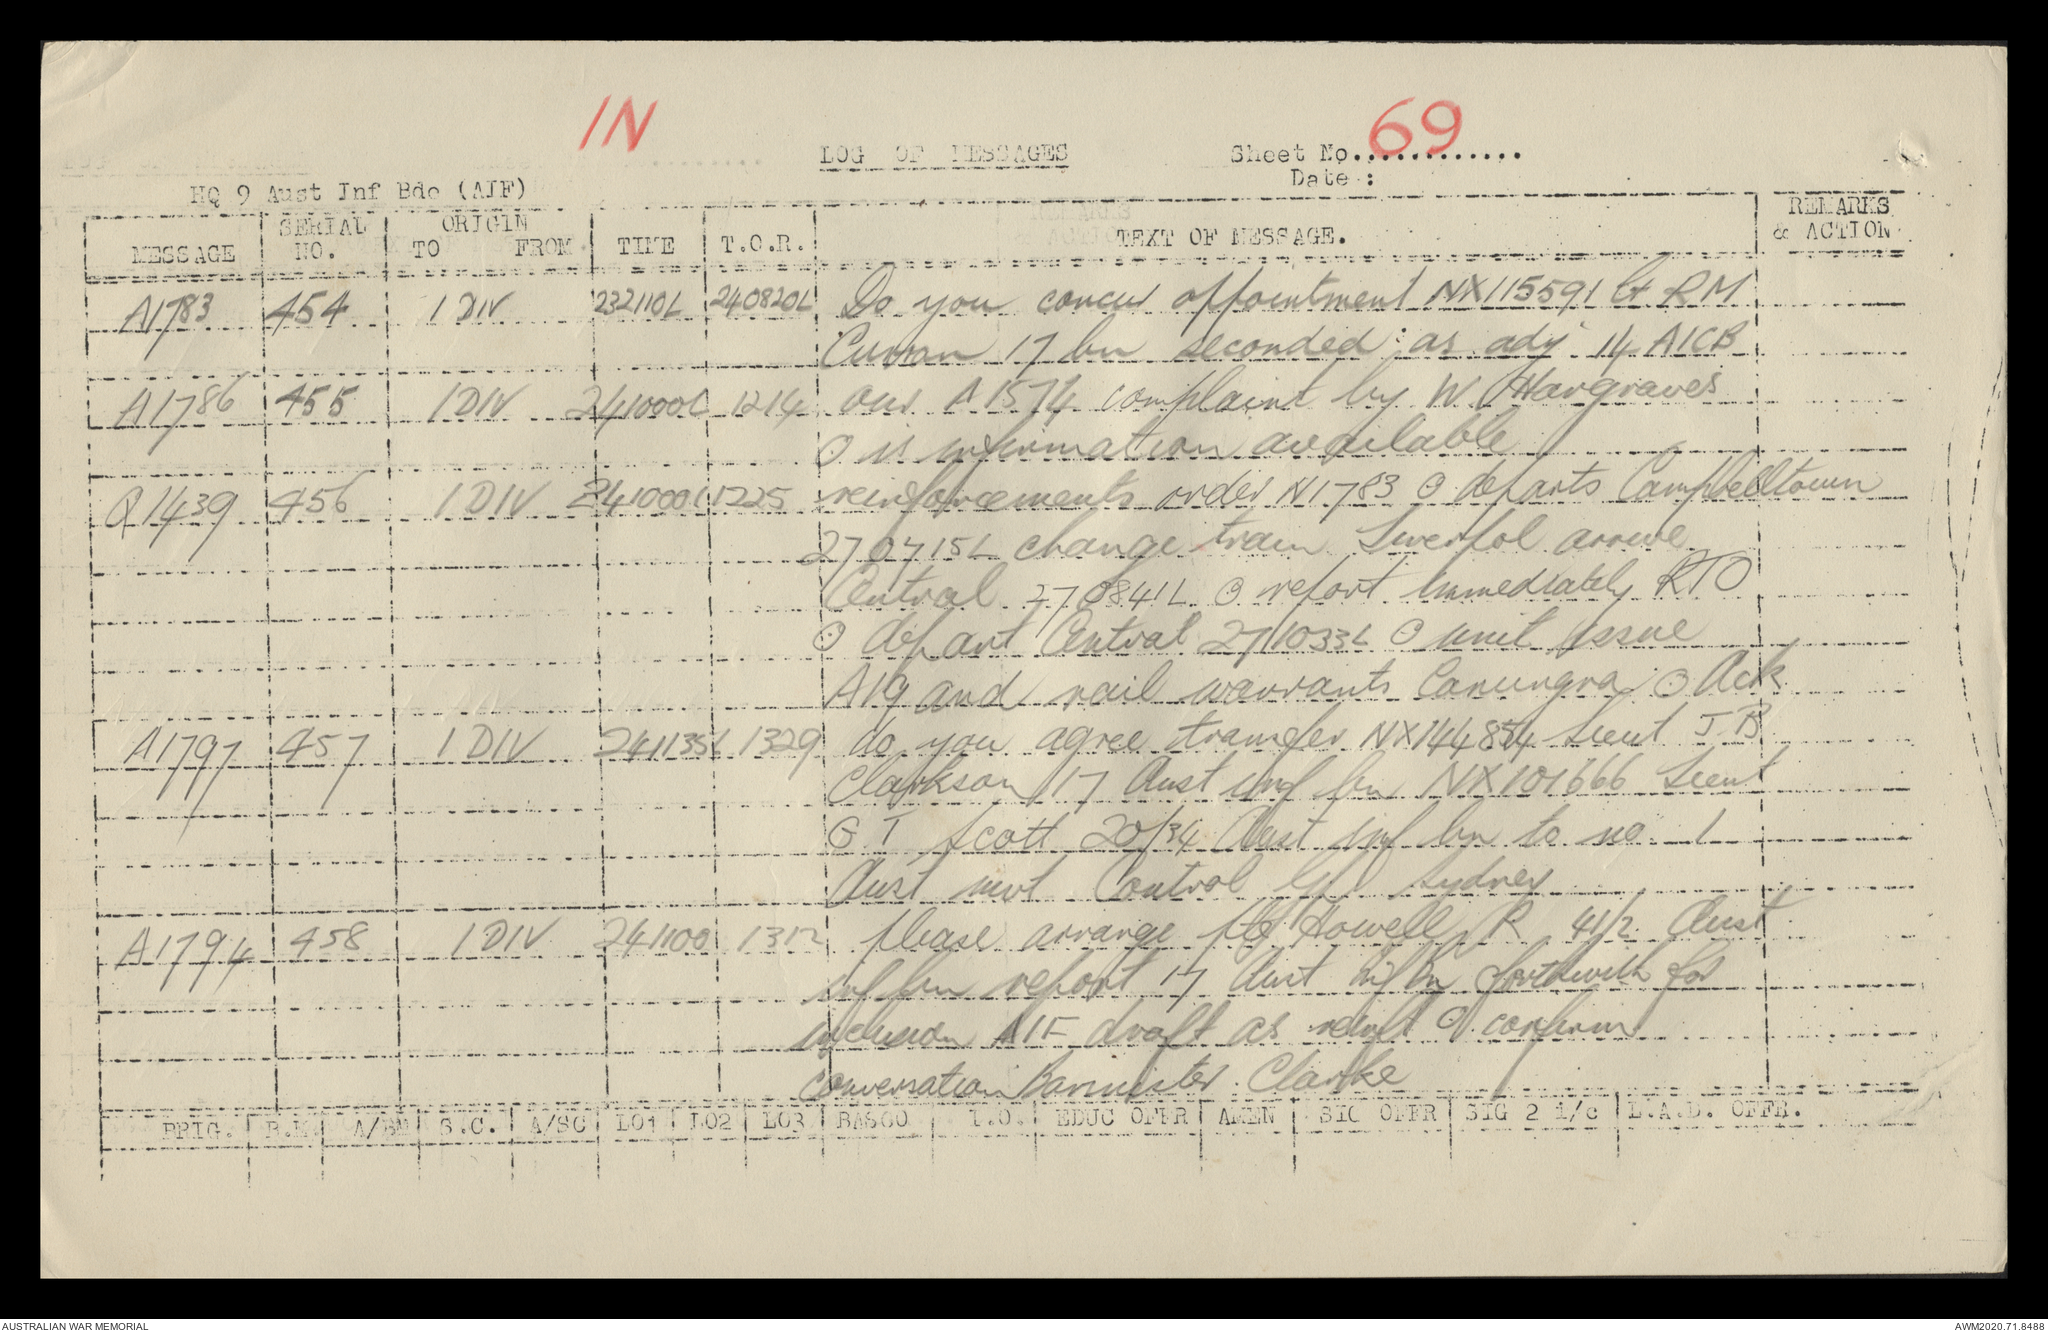 IN
69
LOG OF MESSAGES
Sheet No.............
Date :
HQ 9 Aust Inf Bde (AIF)
MESSAGE SERIAL NO. ORIGIN TO FROM TIME T.O.R. TEXT OF MESSAGE. REMARKS & ACTION
A1783 454 1 DIV 232110L 240820L Do you concur appointment NX115591 Lt RM
Curran 17 bn seconded as adj 14 AICB
A1786 455 1 DIV 241000L 1214 our A1574 complaint by W. Hargraves
⊙ is information available
Q1439 456 1 DIV 241000L 1225 reinforcements order N1783 ⊙ departs Campbelltown
270715L change train Liverpol arrive
Central 270841L ⊙ report immediately RTO
⊙ depart Central 271033L ⊙ unit issue
A19 and rail warrants Canungra ⊙ Ack
A1797 457 1 DIV 241135L 1329 do you agree transfer NX144854 Lieut J B
Clarkson 17 Aust inf bn NX101666 Lieut
G T Scott 20/34 Aust inf bn to no 1
Aust mvt Control Gp Sydney
A1794 458 1 DIV 241100 1312 please arrange pte Howell R 41/2 Aust
inf bn report 17 Aust inf bn forthwith for
inclusion AIF draft as reinft ⊙ confirm
conversation Bannister Clarke
BRIG. B.M. A/BM S.C. A/SC LO1 LO2 LO3 BASOO I.O. EDUC OFFR AMEN SIG OFFR SIG 2 i/c L.A.D. OFFR.
AUSTRALIAN WAR MEMORIAL
AWM2020.71.8488